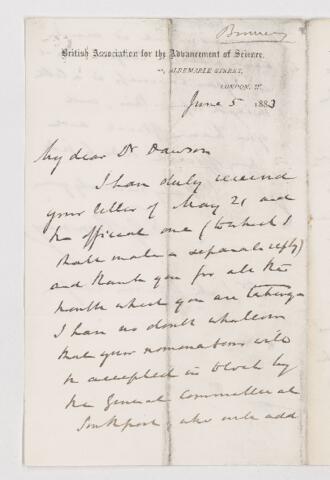 British Association for the Advancement of Science.
22, ALBEMARLE STREET,
LONDON, W.
June 5 1883
My dear Dr Dawson
I have duly received
your letter of May 21 and
the official one (to which I
shall make a separate reply)
and thank you for all the
trouble which you are taking
I have no doubt whatever
that your nominations will
be accepted in block by
the General Committee at
Southport, who will add